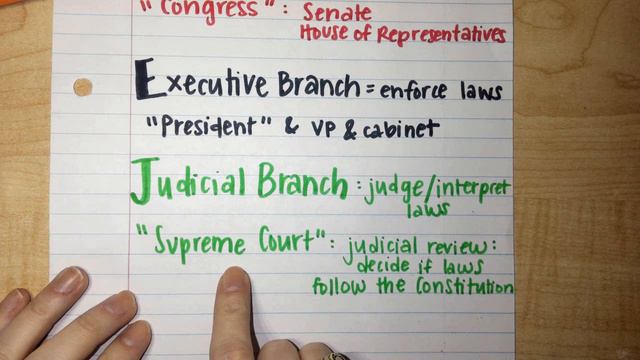 "Congress": Senate
House of Representatives
Executive Branch = enforce laws
"President" & VP & cabinet
Judicial Branch: judge/interpret
laws
"Supreme Court": judicial review:
decide if laws
follow the Constitution